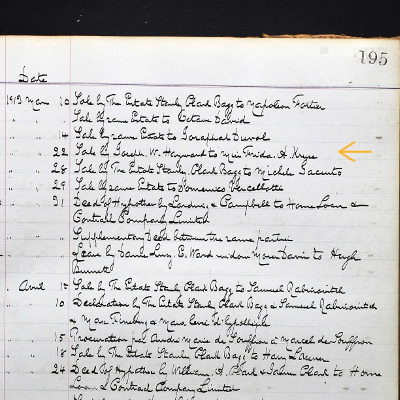 195
Date
1913 Mars 10 Sale by The Estate Stanley Clark Bagg to Napoleon Fortier
" " " Sale by same Estate to Octave David
" " 14 Sale by same Estate to Duval
" " 22 Sale by Joseph W. Hayward to Miss Frida. A. Kruse
" " 28 Sale by The Estate Stanley Clark Bagg to Michele
" " 29 Sale by same Estate to Domenico Vercellotti
" " 31 Deed of Hypothec by & Campbell to Home Loan &
Contract Company Limited
" " " Supplementary Deed between the same parties
" " " Lease by Dame Lucy E. Ward to Hugh
Burnett
" Avril 1 Sale by The Estate Stanley Clark Bagg to Samuel Rabinovitch
" " 10 Declaration by The Estate Stanley Clark Bagg & Samuel Rabinovitch
& Max &
" " 15 Procuration par André Marie de à Marcel de
" " 18 Sale by The Estate Stanley Clark Bagg to Harry
" " 24 Deed of Hypothec by William A. Clark & Clark to Home
Loan & Contract Company Limited